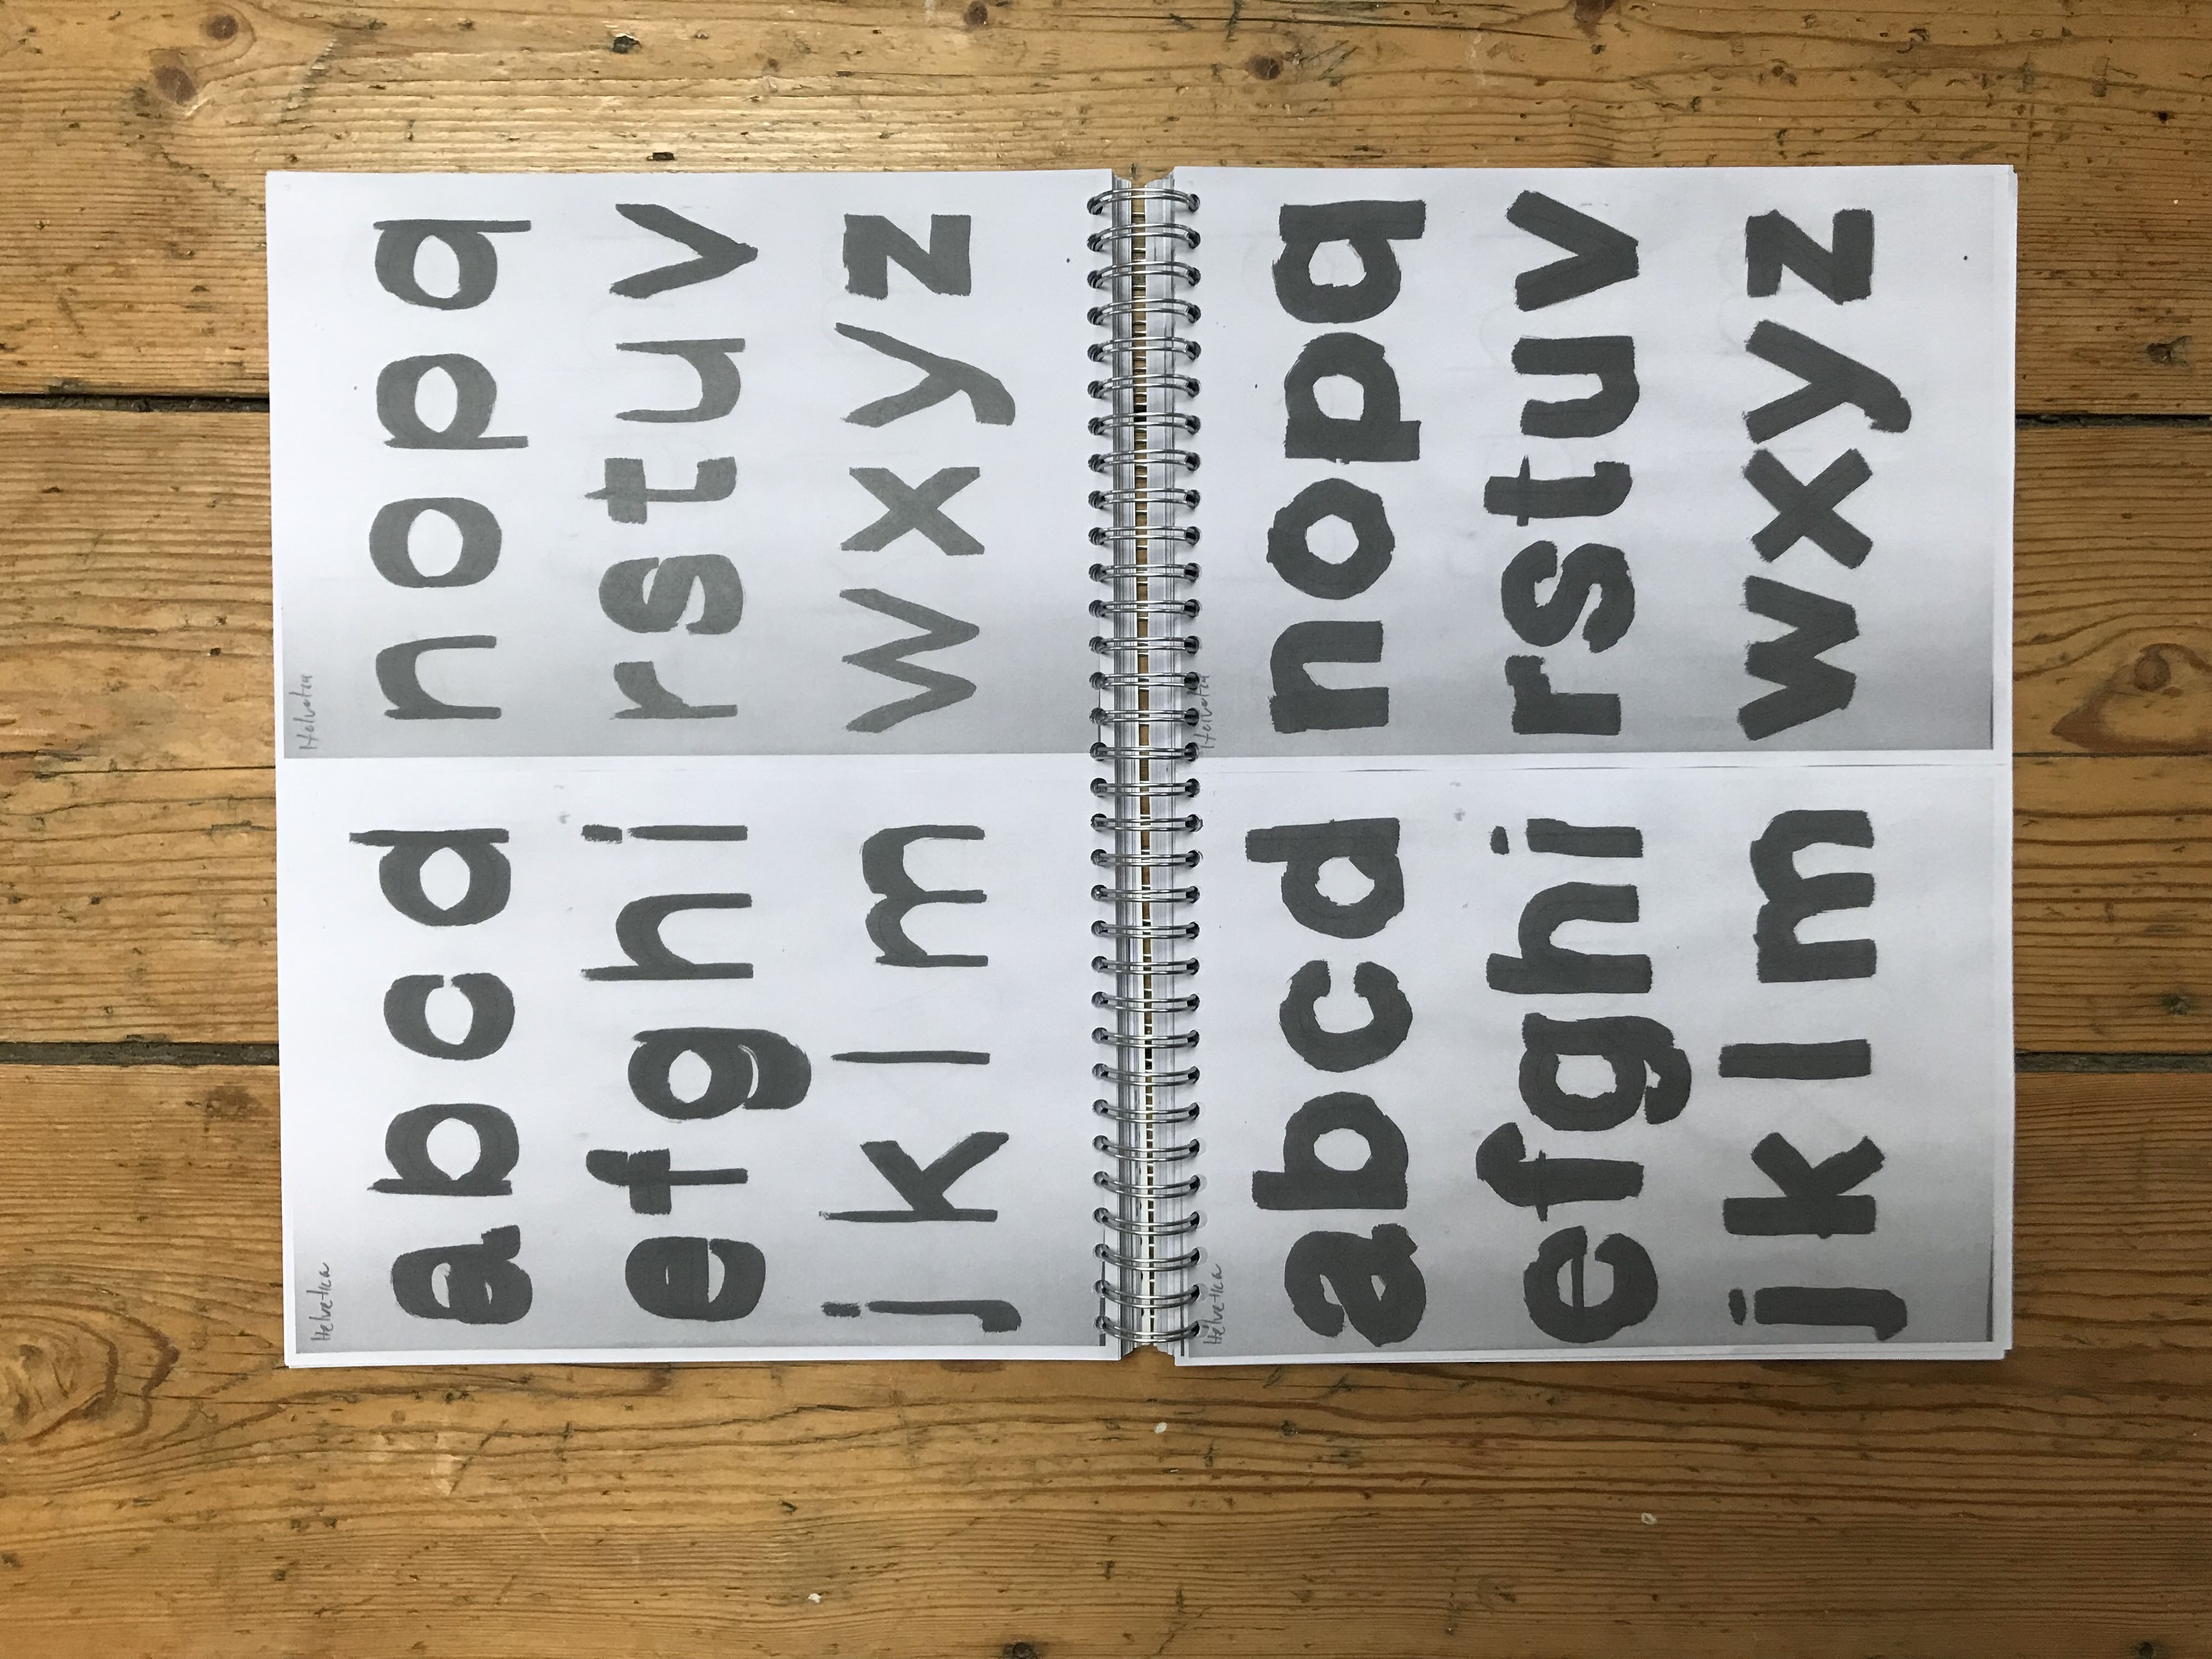 Helvetica
a b c d
e f g h i
j k l m
Helvetica
n o p q
r s t u v
w x y z
Helvetica
a b c d
e f g h i
j k l m
Helvetica
n o p q
r s t u v
w x y z